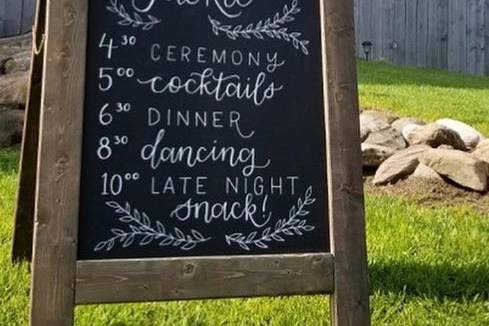 4³⁰ CEREMONY
5⁰⁰ cocktails
6³⁰ DINNER
8³⁰ dancing
10⁰⁰ LATE NIGHT
snack!